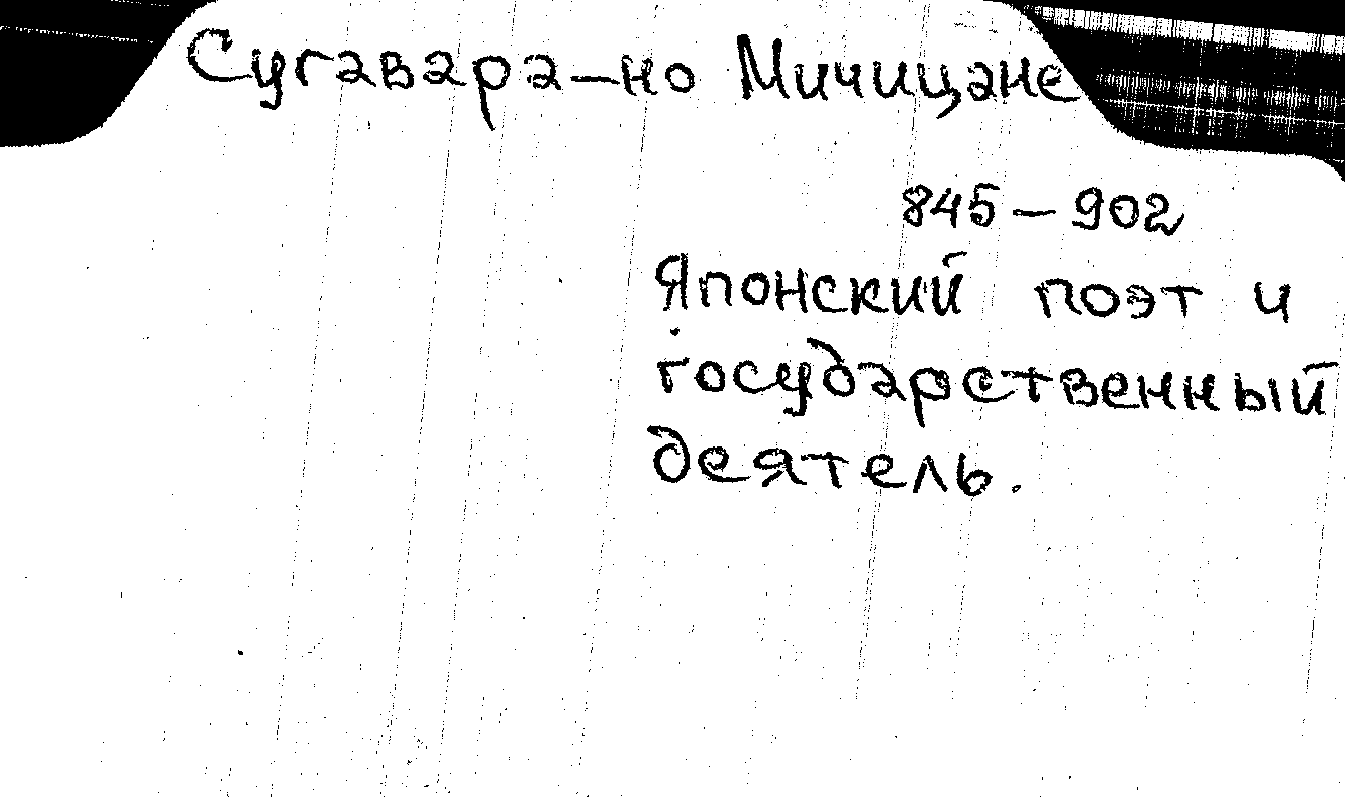 Сугавара-но Мичицанe
845 – 902
Японский поэт и
государственный
деятель.